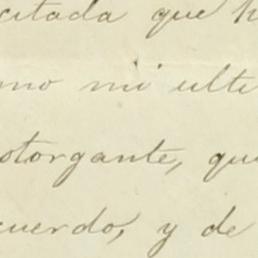 citada que h
mo mi ulti
otorgante, que
cuerdo, y de